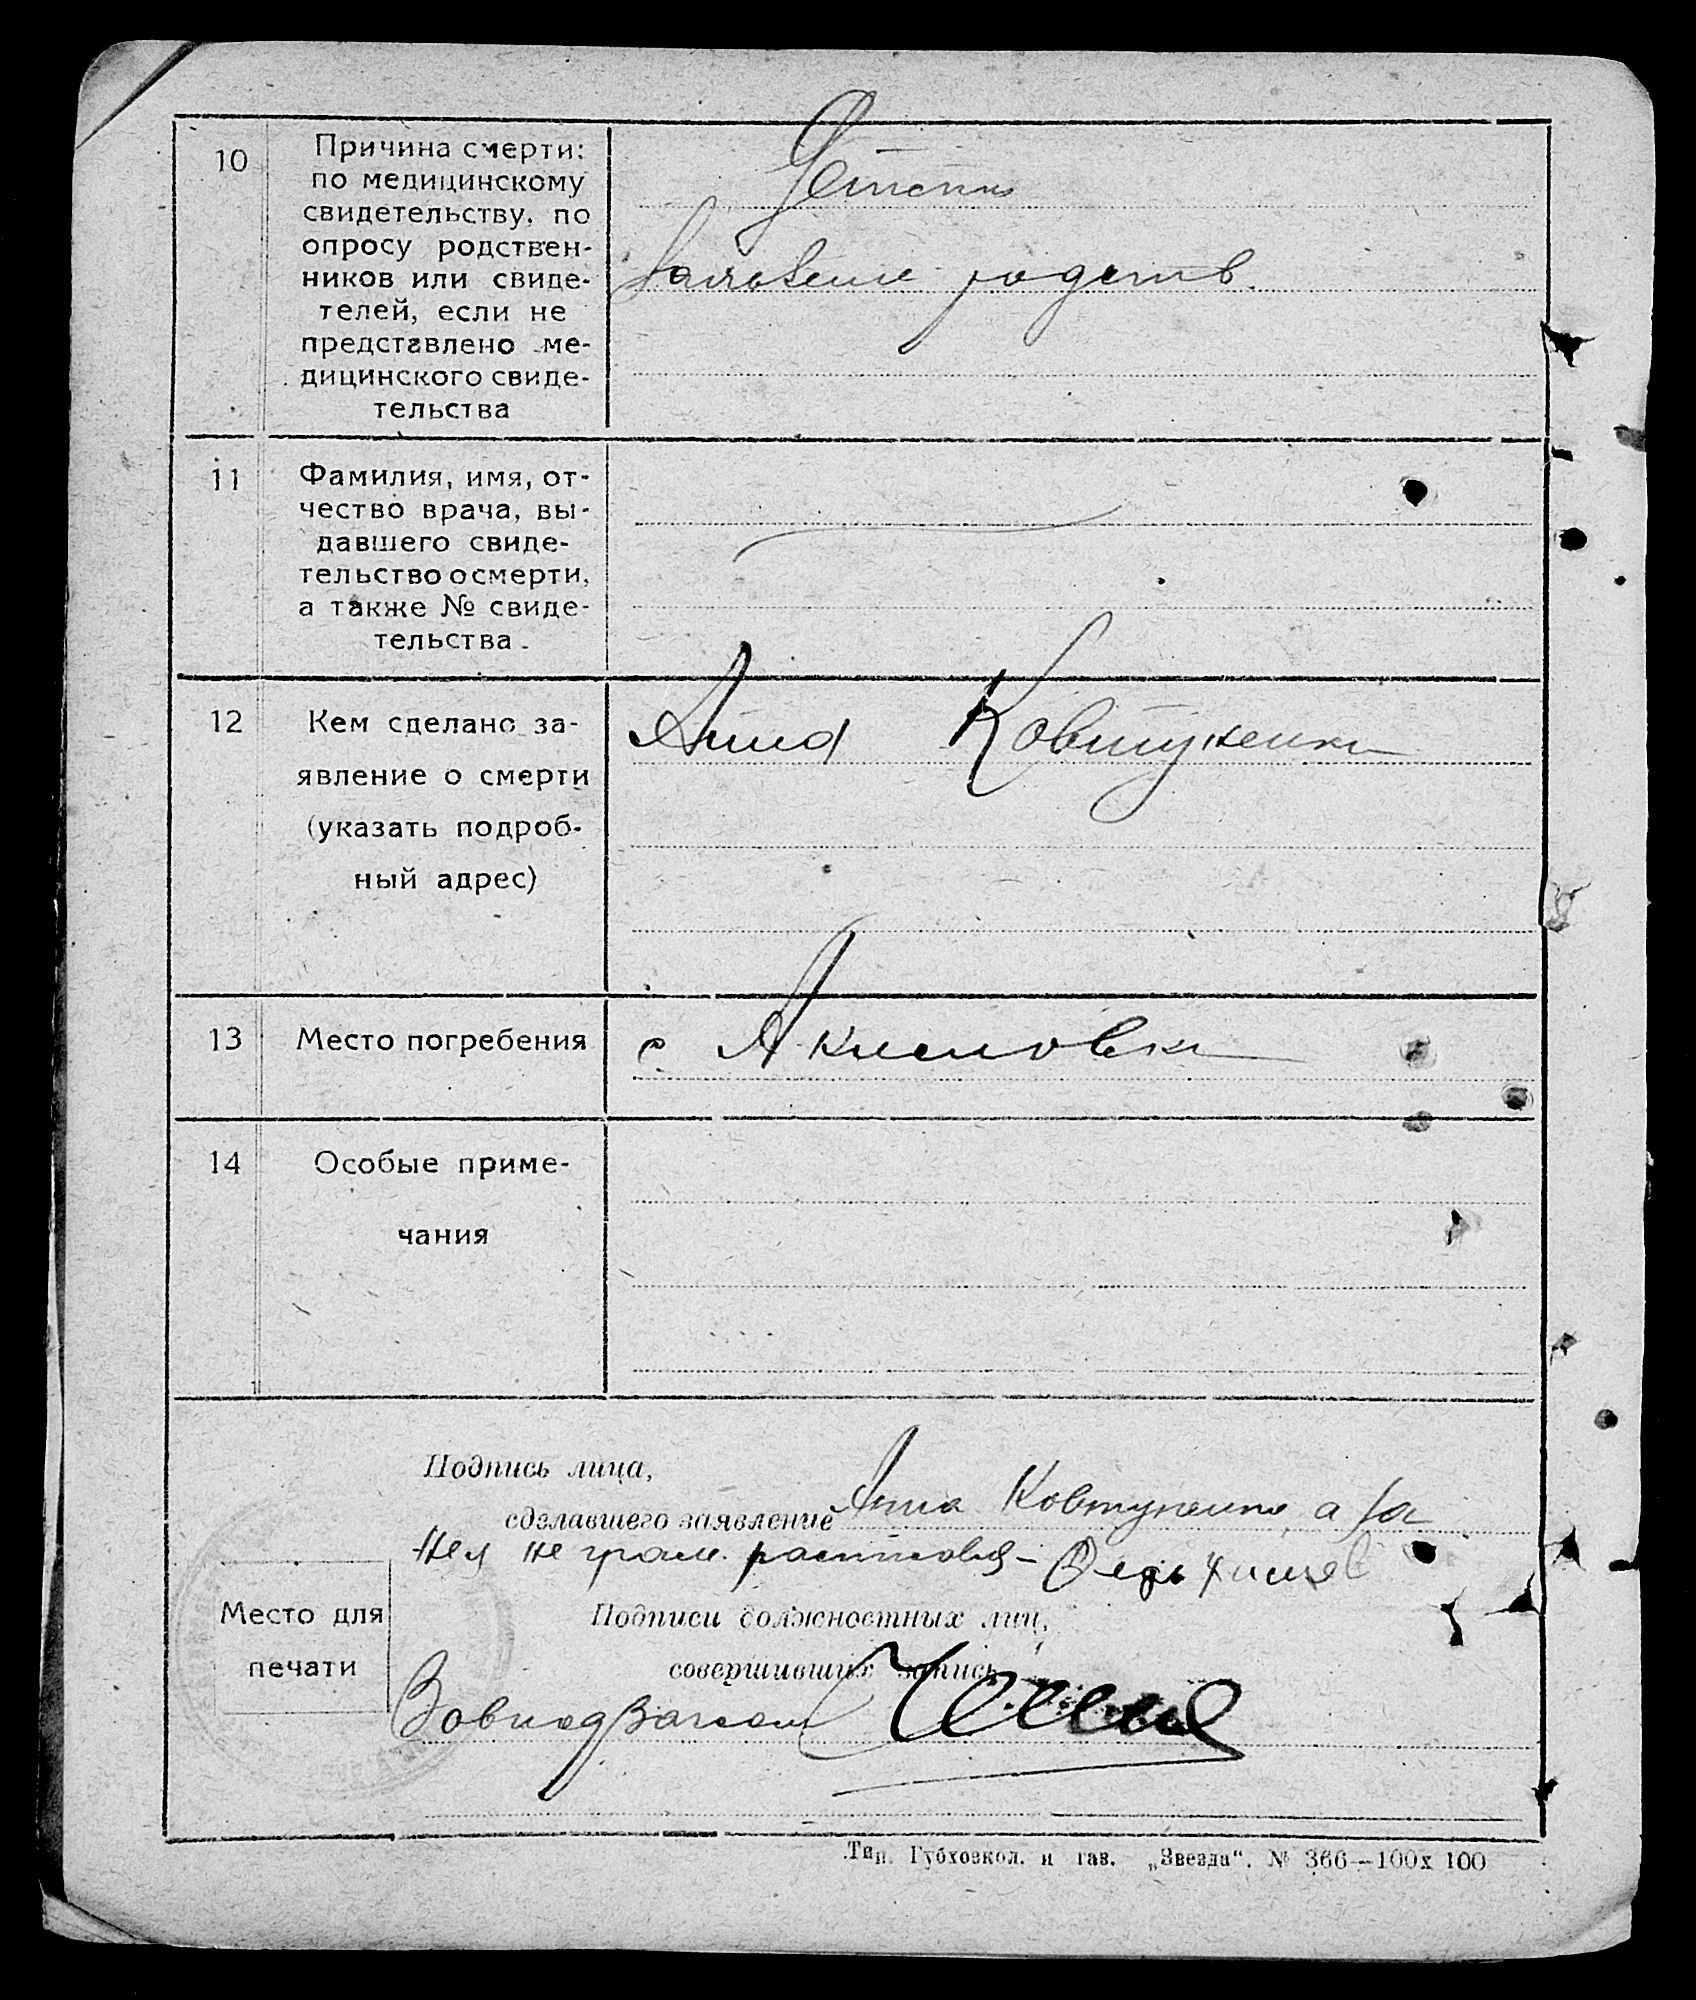 10
Причина смерти:
по медицинскому
свидетельству, по
опросу родствен-
ников или свиде-
телей, если не
представлено ме-
дицинского свиде-
тельства
родств.
11
Фамилия, имя, от-
чество врача, вы-
давшего свиде-
тельство о смерти,
а также № свиде-
тельства.
12
Кем сделано за-
явление о смерти
(указать подроб-
ный адрес)
Анна Ковтуненко
13
Место погребения
с Акимовка
14
Особые приме-
чания
Подпись лица,
сделавшего заявление Анна Ковтуненко, а за
нея не грам. расписовся
Место для
печати
Подписи должностных лиц,
совершивших запись
Тип. Губхозкол. и газ. „Звезда“. № 366—100х100